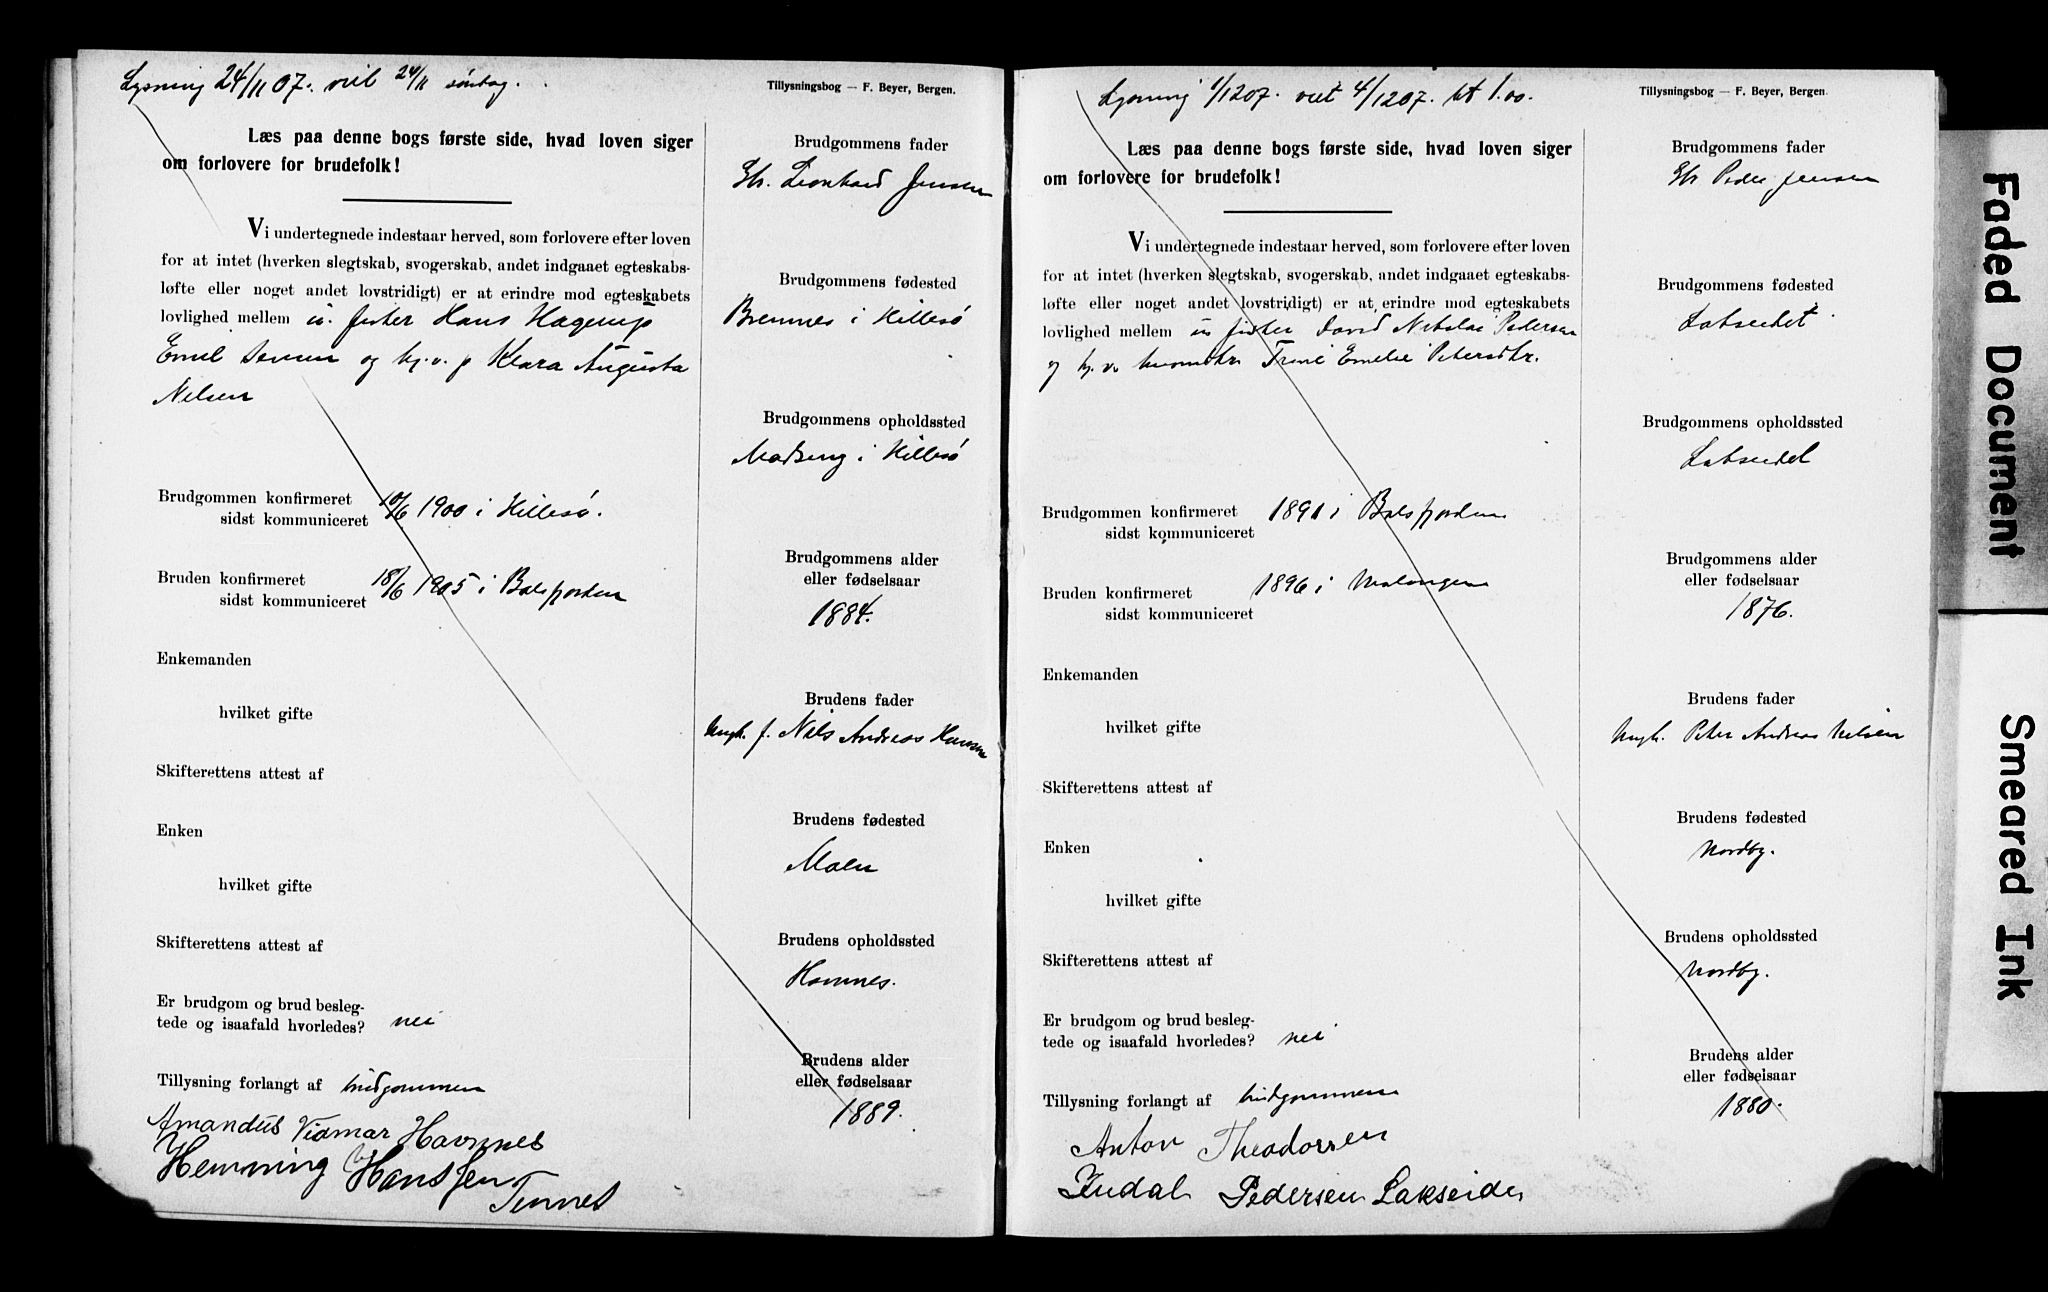 Lysning 24/11 07. viet 24/11 søndag.
Tillysningsbog — F. Beyer, Bergen.
Læs paa denne bogs første side, hvad loven siger
om forlovere for brudefolk!
Vi undertegnede indestaar herved, som forlovere efter loven
for at intet (hverken slegtskab, svogerskab, andet indgaaet egteskabs-
løfte eller noget andet lovstridigt) er at erindre mod egteskabets
lovlighed mellem u. fisker Hans Hagerup
Emil Jensen og pj. v. p Klara Augusta
Nilsen
Brudgommen konfirmeret 10/6 1900 i Hillesø.
sidst kommuniceret
Bruden konfirmeret 18/6 1905 i Balsfjorden
sidst kommuniceret
Enkemanden
hvilket gifte
Skifterettens attest af
Enken
hvilket gifte
Skifterettens attest af
Er brudgom og brud besleg-
tede og isaafald hvorledes? nei
Tillysning forlangt af brudgommen
Amandus Vidmar Havnnes
Hemming Hansjen
Tennes
Brudgommens fader
Gbr. Leonhard Jensen
Brudgommens fødested
Brennes i Hillesø
Brudgommens opholdssted
i Hillesø
Brudgommens alder
eller fødselsaar
1884.
Brudens fader
f. Nils Andreas Hansen
Brudens fødested
Malen
Brudens opholdssted
Havnnes.
Brudens alder
eller fødselsaar
1889.
Lysning 1/12 07. viet 4/12 07. kl 1.00.
Tillysningsbog — F. Beyer, Bergen.
Læs paa denne bogs første side, hvad loven siger
om forlovere for brudefolk!
Vi undertegnede indestaar herved, som forlovere efter loven
for at intet (hverken slegtskab, svogerskab, andet indgaaet egteskabs-
løfte eller noget andet lovstridigt) er at erindre mod egteskabets
lovlighed mellem u fisker David Nikolai Pedersen
og pj. v. Trine Emelie Petersdtr.
Brudgommen konfirmeret 1891 i Balsfjorden
sidst kommuniceret
Bruden konfirmeret 1896 i Malangen
sidst kommuniceret
Enkemanden
hvilket gifte
Skifterettens attest af
Enken
hvilket gifte
Skifterettens attest af
Er brudgom og brud besleg-
tede og isaafald hvorledes? nei
Tillysning forlangt af brudgommen
Anton Theodorsen
Indal Pedersen Lakseide
Brudgommens fader
Gbr Peder Jensen
Brudgommens fødested
Lakseidet
Brudgommens opholdssted
Lakseidet
Brudgommens alder
eller fødselsaar
1876.
Brudens fader
Peter Andreas Nilsen
Brudens fødested
Nordby.
Brudens opholdssted
Nordby.
Brudens alder
eller fødselsaar
1880.
Faded Document
Smeared Ink